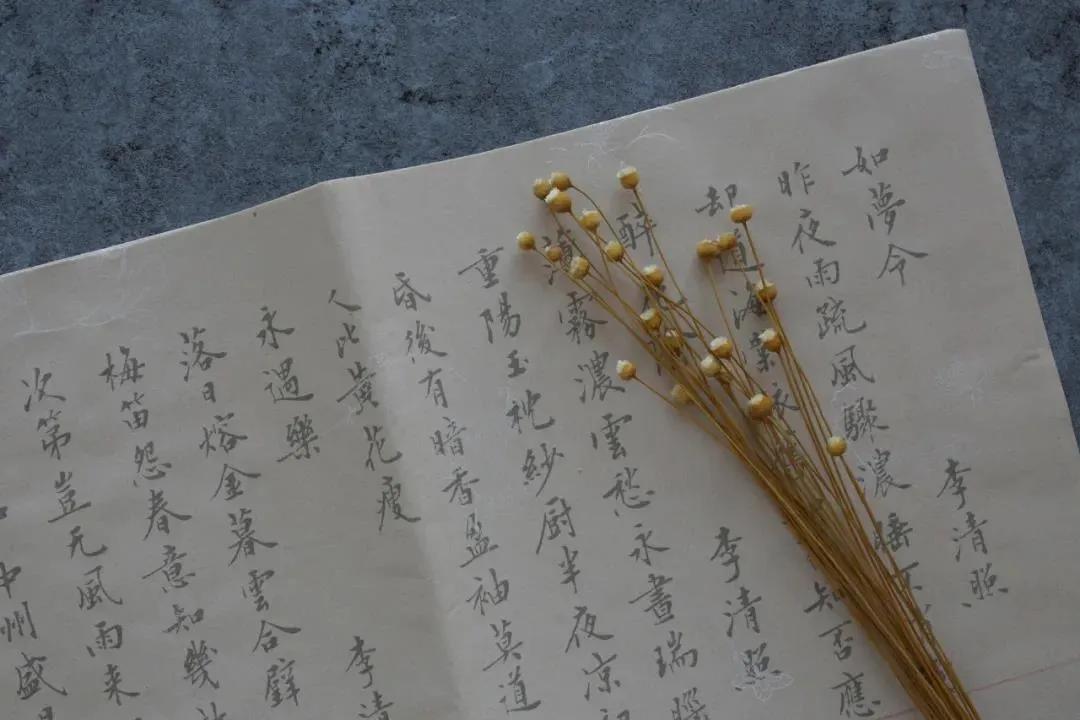 如夢令 李清照
昨夜雨疏風驟濃睡不
却道海棠依舊知否應
醉 李清照
薄霧濃雲愁永晝瑞腦
重陽玉枕紗厨半夜凉初
昏後有暗香盈袖莫道
人比黄花瘦
永遇樂 李清
落日熔金暮雲合璧
梅笛怨春意知幾
次第豈无風雨来
中州盛